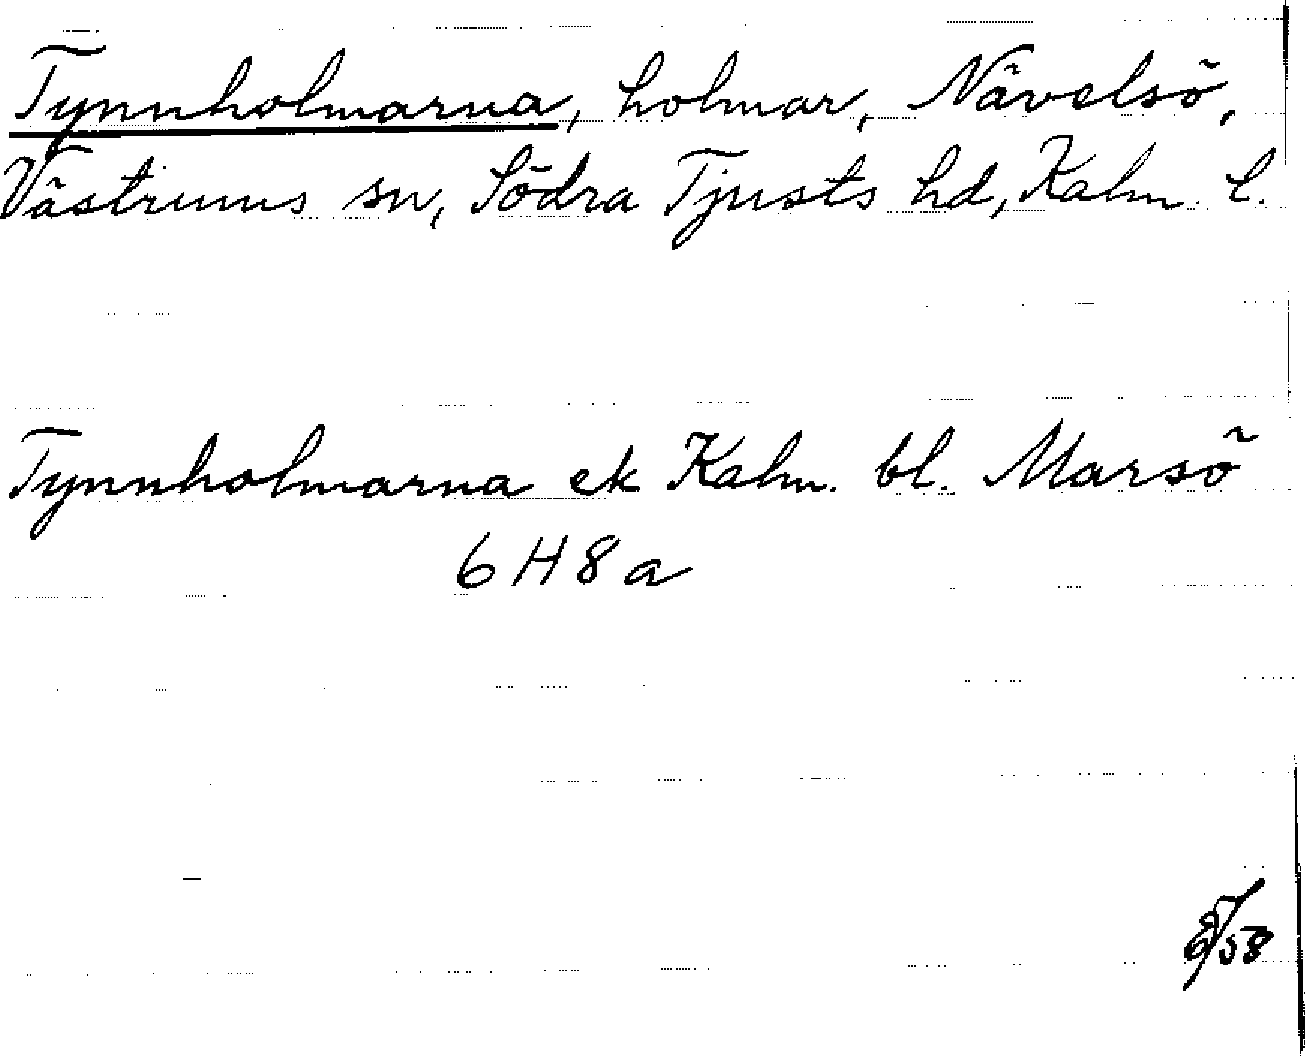 Tynnholmarna, holmar, Nävelsö,
Västrums sn, Södra Tjusts hd, Kalm. l.
Tynnholmarna ek Kalm. bl. Marsö
6 H 8 a